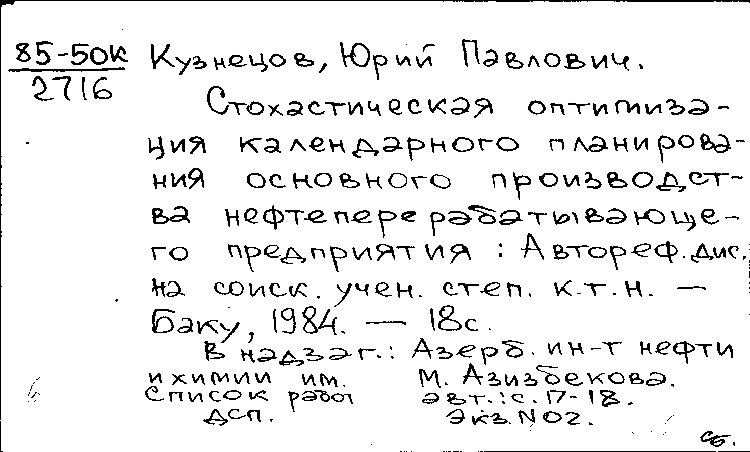 85-50К Кузнецов, Юрий Павлович.
2716
Стохастическая оптимиза-
ция календарного планирова-
ния основного производст-
ва нефтеперерабатывающе-
го предприятия : Автореф. дис.
на соиск. учен. степ. к.т.н. —
Баку, 1984. — 18с.
В надзаг.: Азерб. ин-т нефти
и химии им. М. Азизбекова.
Список работ авт.: с. 17-18.
ДСП. Экз. N02.
СБ.